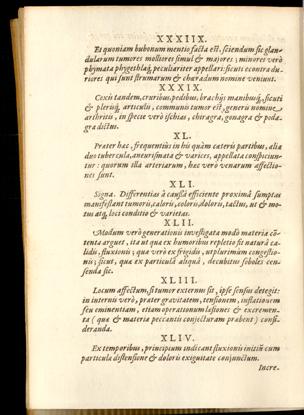 XXXIIX.
Et quoniam bubonum mentio facta est, sciendum sic glan-
dularum tumores molliores simul & majores; minores verò
phymata phygethlaq́; peculiariter appellari: sicuti econtra du-
riores qui sunt strumarum & chœradum nomine veniunt.
XXXIX.
Coxis tandem, cruribus, pedibus, brachijs manibusq́;, sicuti
& plerisq́; articulis, communis tumor est, generis nomine
arthritis, in specie verò ischias, chiragra, gonagra & poda-
gra dictus.
XL.
Præter hæc, frequentius in his quàm cæteris partibus, alia
duo tubercula, aneurismata & varices, appellata conspiciun-
tur: quorum illa arteriarum, hæc verò venarum affectio-
nes sunt.
XLI.
Signa. Differentias à caussâ efficiente proximâ sumptas
manifestant tumoris, caloris, coloris, doloris, tactus, ut & mo-
tus atq́, loci conditio & varietas.
XLII.
Modum verò generationis investigata modò materia cō-
tenta arguet, ita ut quæ ex humoribus repletio sit naturâ ca-
lidis, fluxionis; quæ verò ex frigidis, utplurimùm congestio-
nis; sicut, quæ ex particulâ aliquâ, decubitus soboles cen-
senda sit.
XLIII.
Locum affectum, si tumor externus sit, ipse sensus detegit:
in internis verò, præter gravitatem, tensionem, inflationem
seu eminentiam, etiam operationum læsiones & excremen-
ta (quæ & materiæ peccantis conjecturam præbent) consi-
deranda.
XLIV.
Ex temporibus, principium indicant fluxionis initiū cum
particula distensione & doloris exiguitate conjunctum.
Incre.